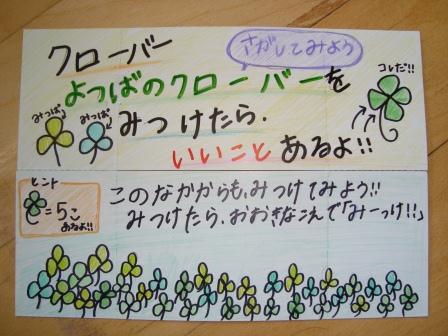 クローバー
さがしてみよう
よつばのクローバーを
コレだ!!
みつば
みつば
みつけたら.
いいことあるよ!!
ヒント
=5こ
あるよ!!
このなかからも、みつけてみよう!!
みつけたら、おおきなこえで「みーつけ!!」